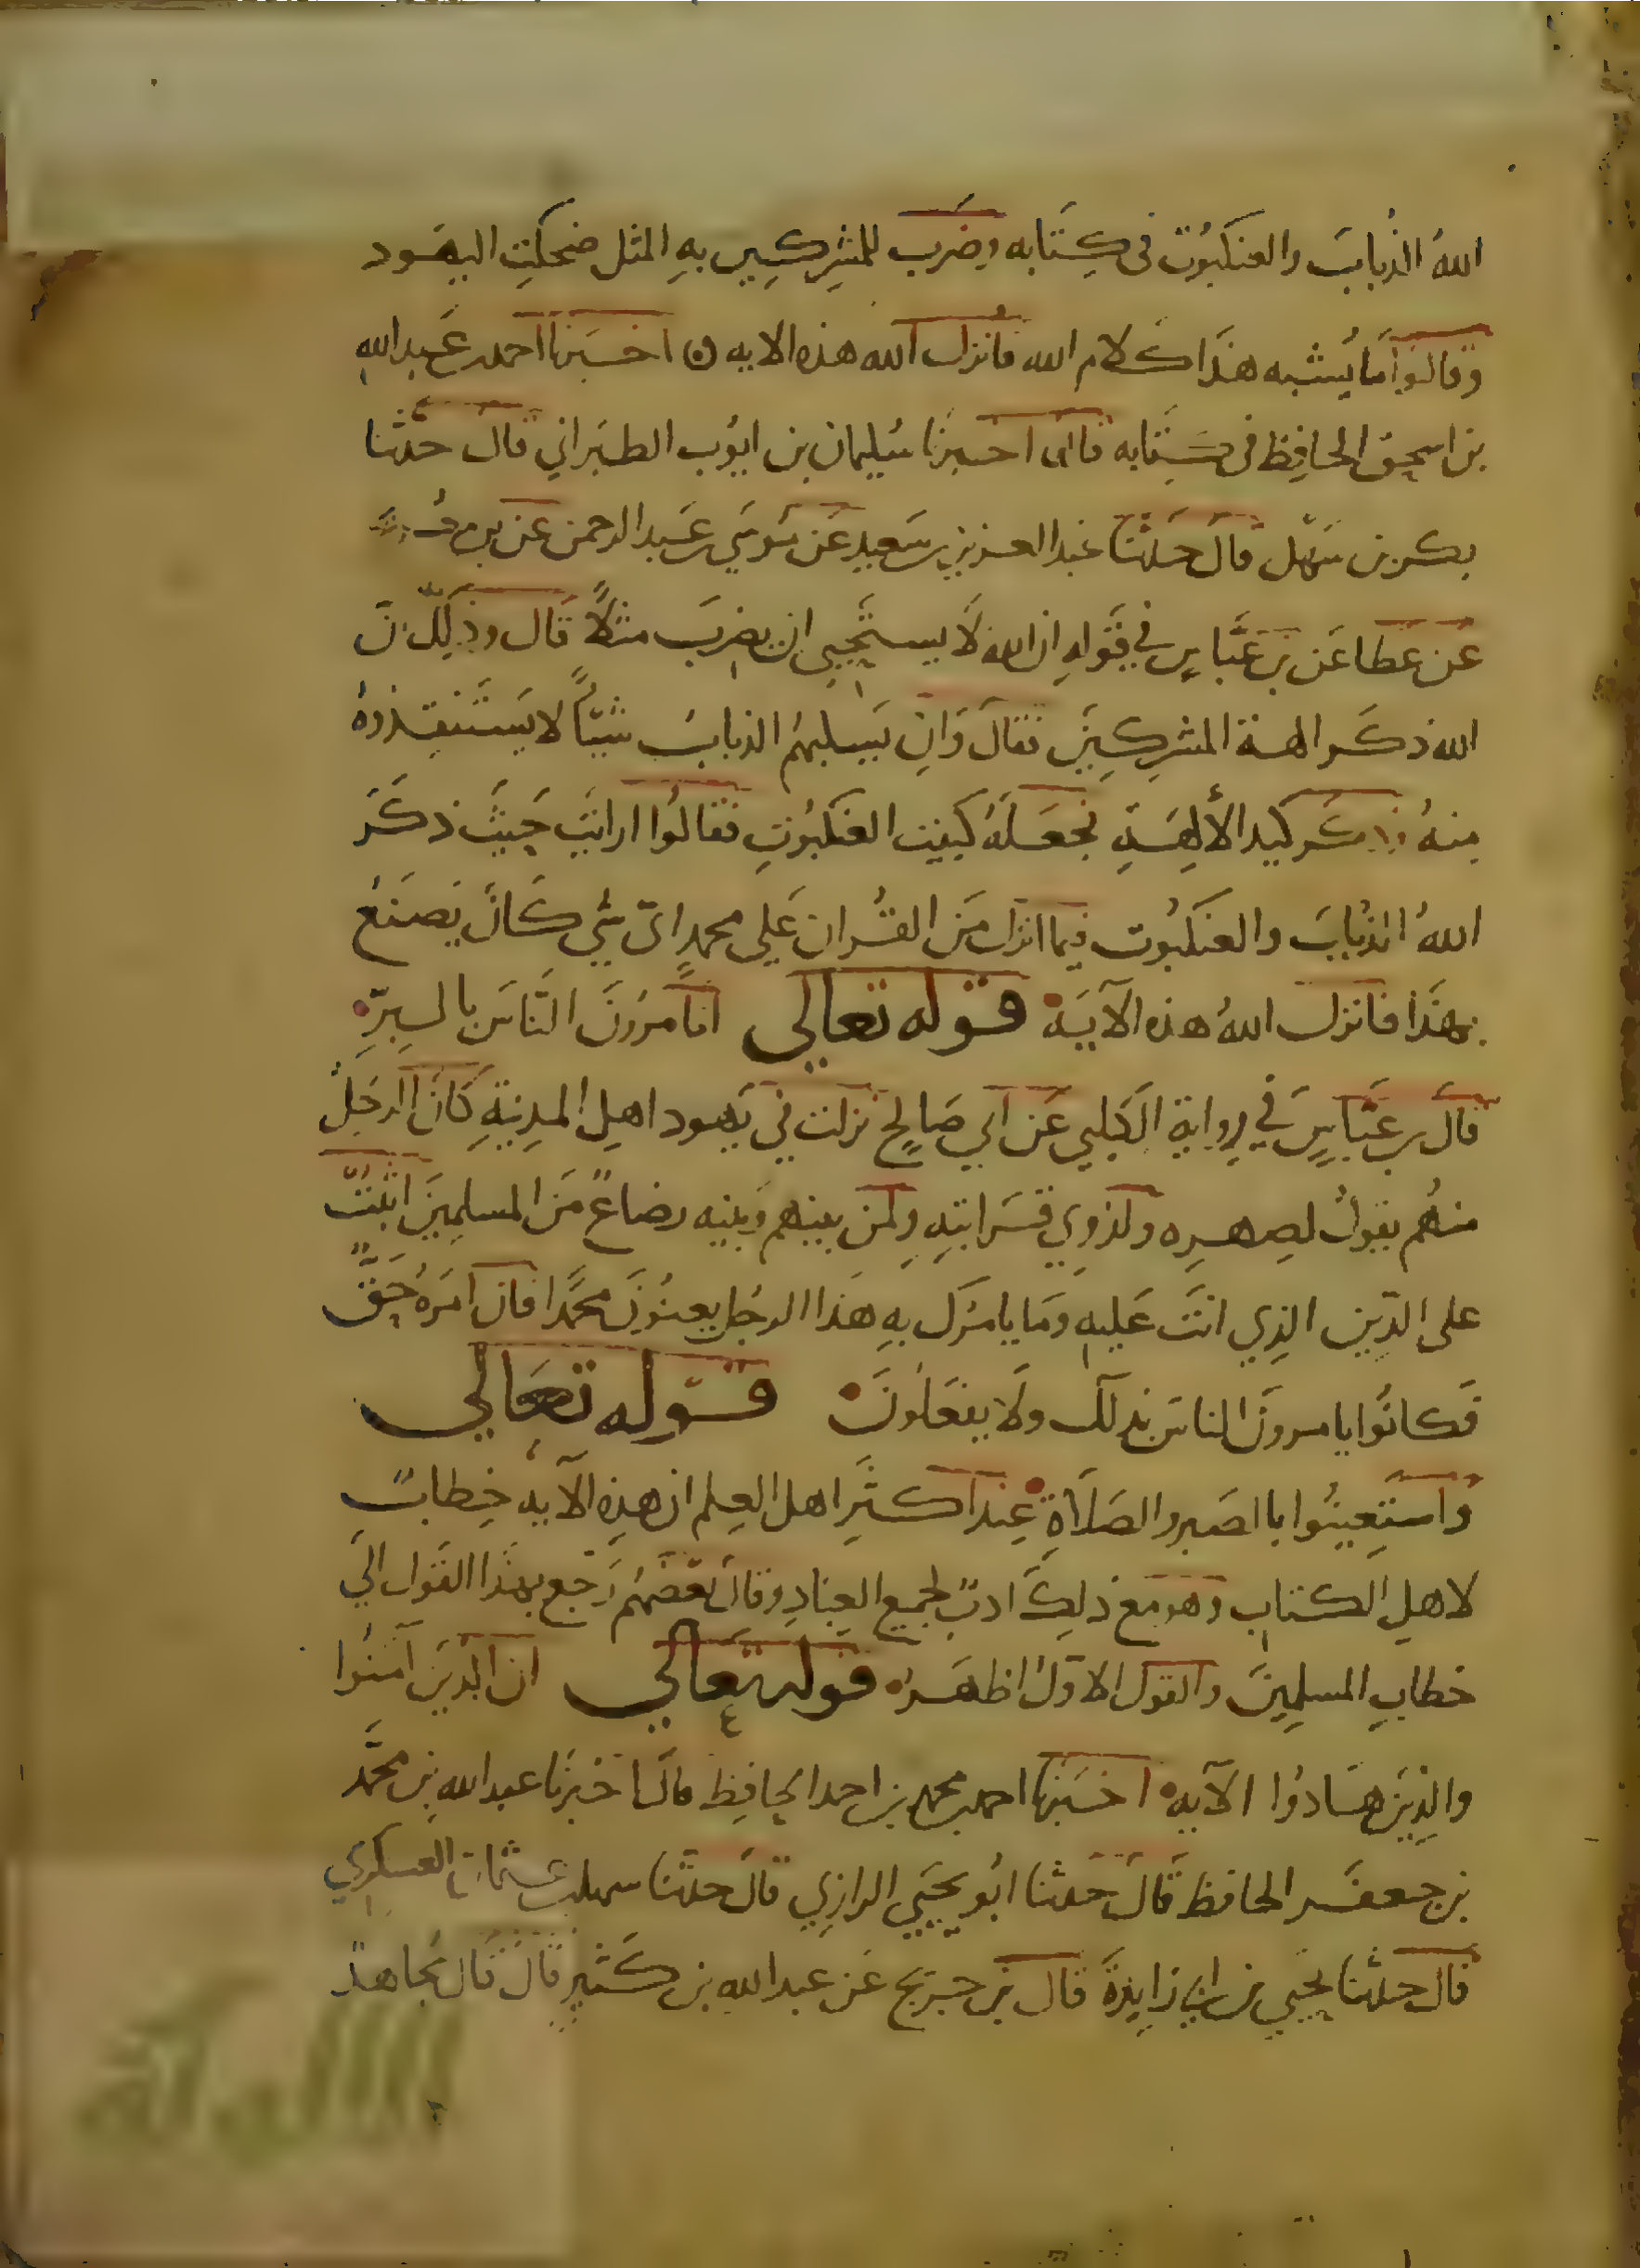 اللهُ الذُبابَ والعنكبُوتَ في كِتَابه وضَرَب للمُشرِكِين بهِ المثل ضحكتِ اليهَود
وقالوا مَا يُشبه هذَا كَلام الله فانزل الله هذه الايه ه اخبَرنا احمد بن عَبد اللهِ
بن اسحق الحافِظ في كِتَابه قال اخبرنا سُليمان بن ايوُب الطبَراني قال حدثنا
بكر بن سَهْل قالَ حَدثنَا عَبد العزيز بن سَعيد عَن مُوسَي بن عَبد الرحمن عَن بن
عَن عَطا عَن بن عَبَّاسٍ في قَولِهِ ان الله لَا يستَحيى ان يضربَ مثلاً قَال وذَلِكَ انّ
الله ذكَر الهة المشرِكِينَ فقالَ وَان يَسلبهمُ الذبابُ شيئاً لا يَسْتَنقِذوهُ
مِنهُ كيد الألِهَةِ فجعَلَهُ كبَيت العَنكبُوتِ فقالُوا ارايتَ حَيثُ ذكَرَ
اللهُ الذبابَ والعَنكبُوت فيما انزل مَن القُران عَلي محمدٍ ايّ شي كَانَ يَصنَعُ
بهَذَا فانزل اللهُ هذه الآيَه قوله تعالي اتامرُونَ النَّاسَ بالبِرِّ
قالَ بن عَبَّاسٍ في رِوايَة الكَلبي عَن ابي صَالحٍ نزلت في يَهود اهلِ المدِينَةِ كانَ الرجُل
منهُم يقولُ لصِهرِه ولذوِي قَرَابتِهِ ولمن بينهم وَبَينه رضاعٌ مَن المسلمِينَ اثبُت
على الدّين الذِي انتَ عَليهِ ومَا يامُرُك بهِ هَذا الرجُل يعنُونَ محمَّدا فان امرَهُ حَقٌّ
فكانُوا يامرونَ الناسَ بذلك ولَا يفعَلونَه قوله تعَالي
وَاستَعِينُوا باالصَبر والصَلاَةِ عِند اكثَرِ اهل العِلم ان هذِهِ الآيه خِطابٌ
لاهلِ الكتابِ وهو مع ذلِكَ ادبٌ لجميع العِبادِ وقالَ بَعضهُم رَجَع بهذَا القَول الَي
خطابِ المسلِمِينَ والقول الاوّلُ اظهَرُ قوله تعَالي ان الّذِينَ آمنُوا
والذِينَ هَادُوا الآيه اخبَرنا احمد بن محمد بن احمد الحافِظ قالَ اخبرنَا عبد الله بن محمَّد
بن جعفَر الحافظ قالَ حَدثنا ابُو يحيَي الرازِي قالَ حدثنَا سهل بن عثمان العسكري
قال حدثنا يحيي بن ابي زايدَة قال بن جريج عَن عبد الله بن كَثيرٍ قالَ قال مُجاهدٌ